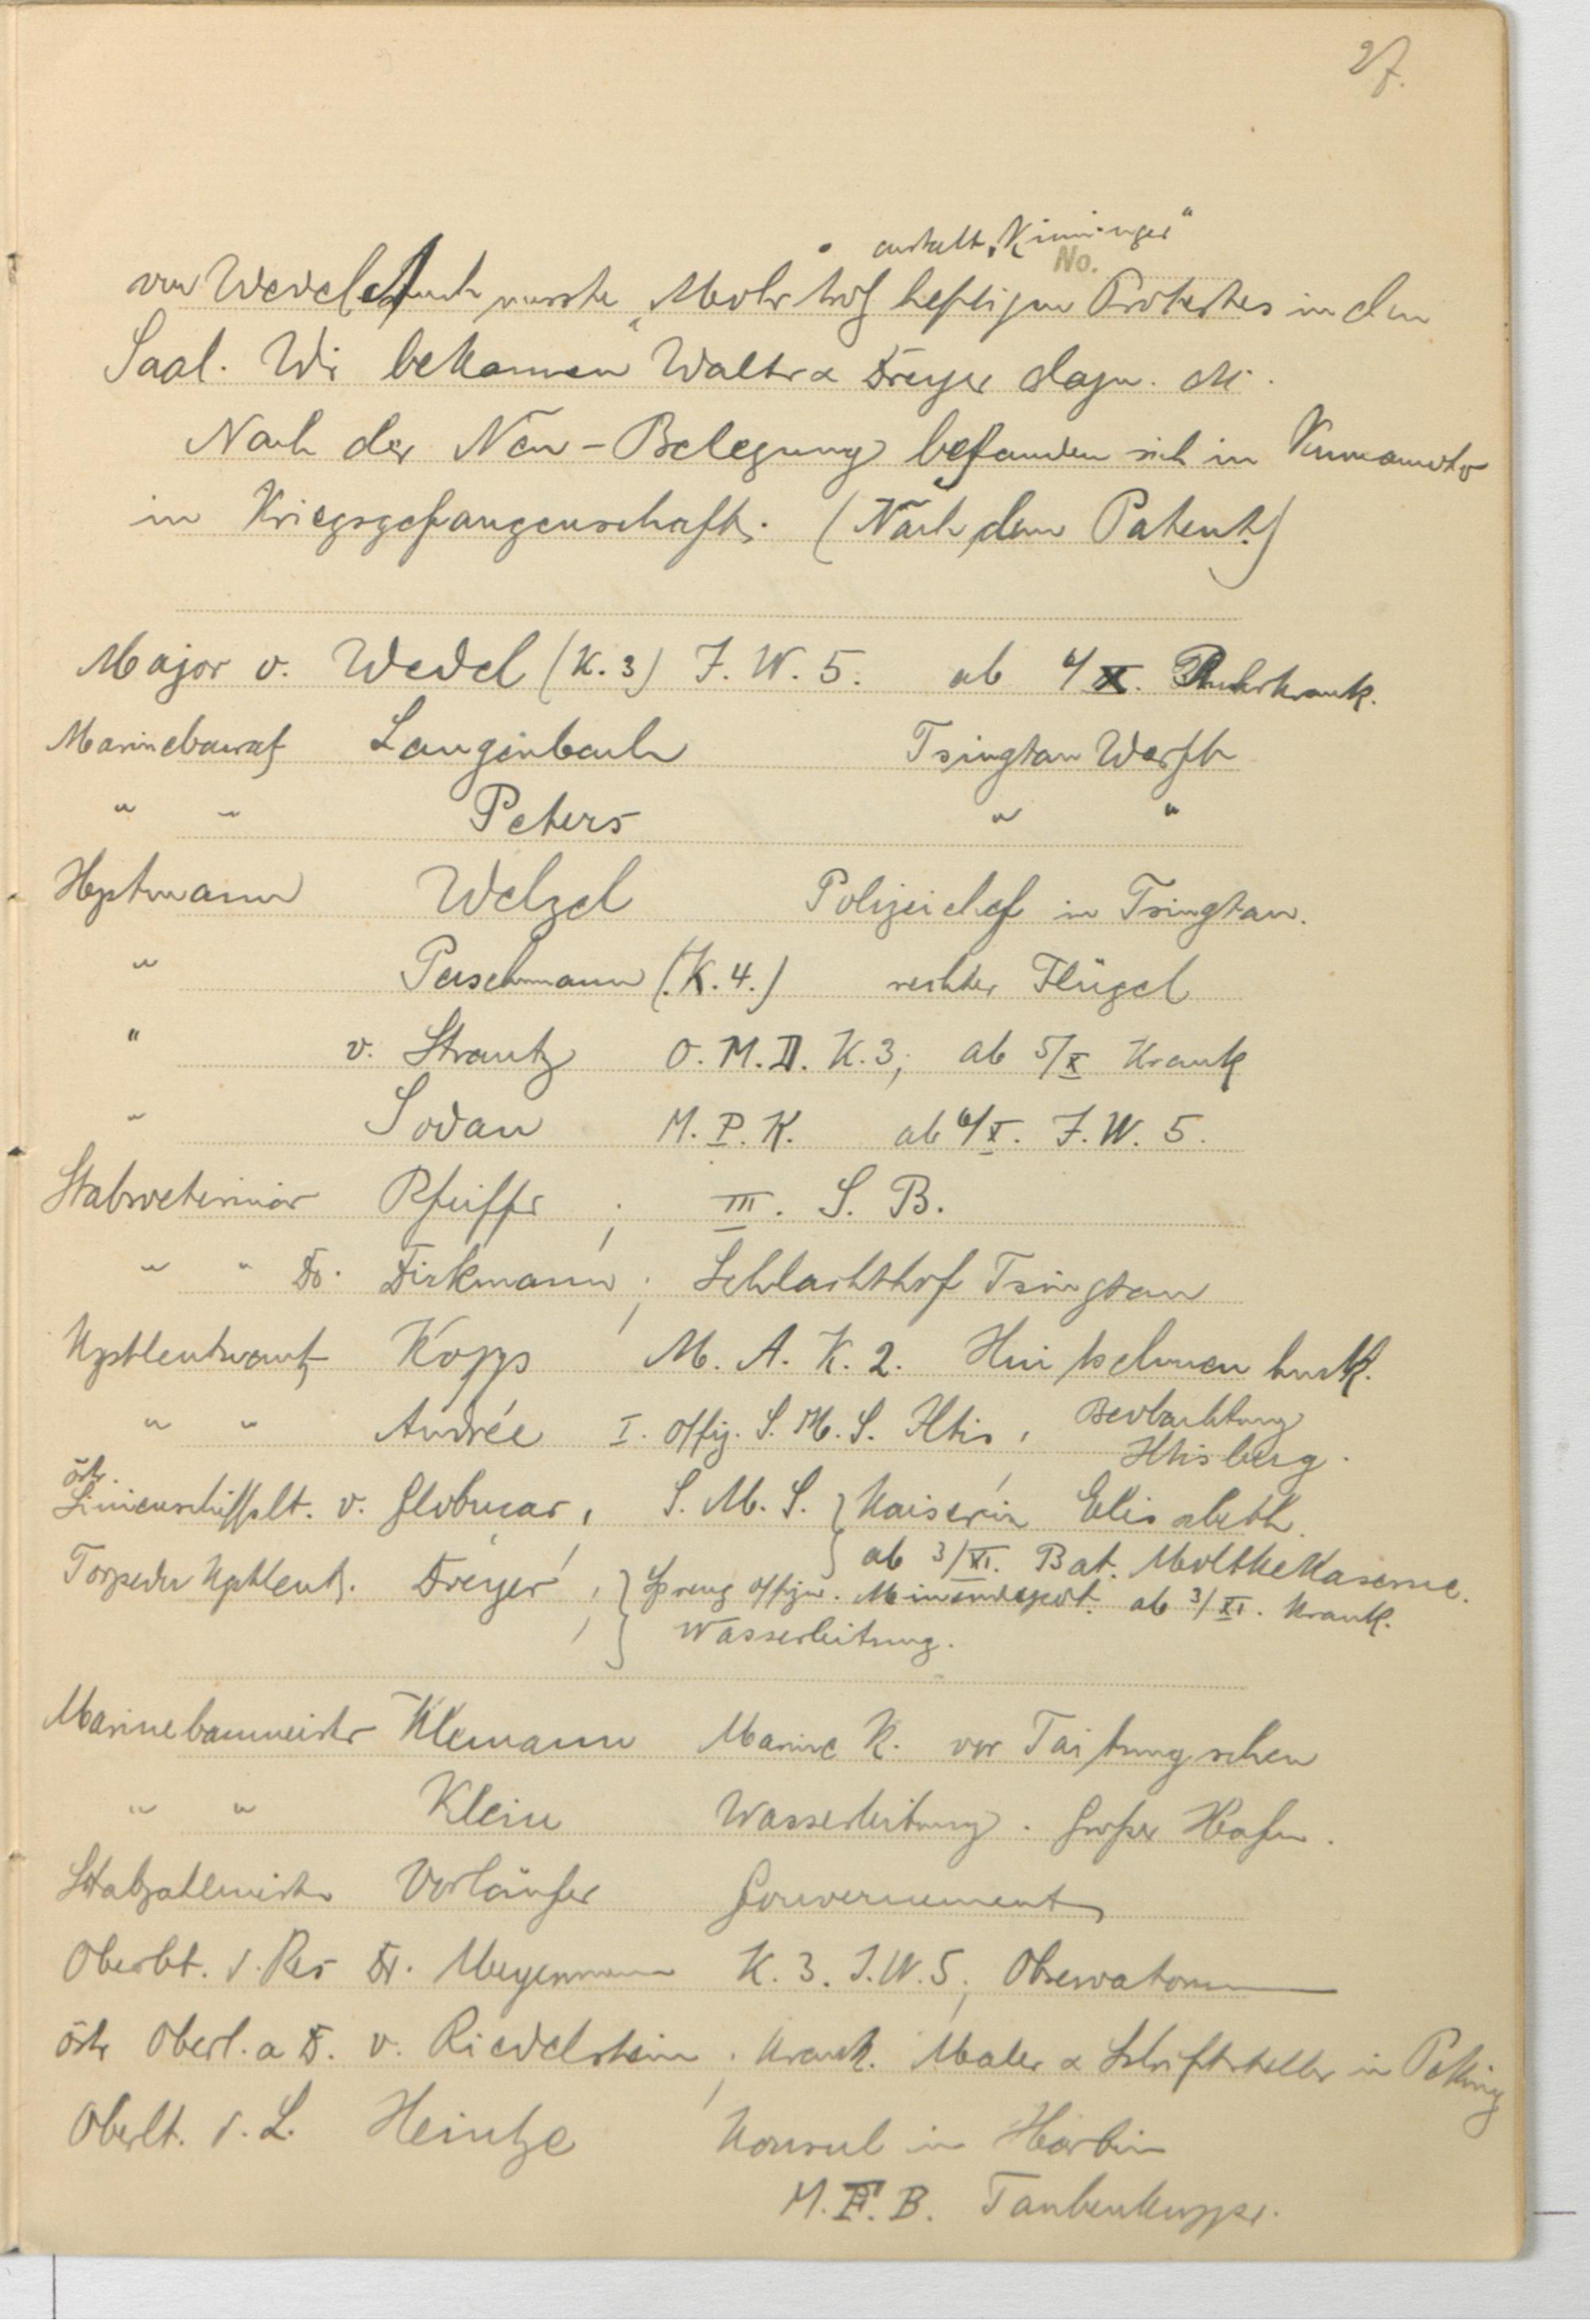 27.
anstatt „Kiminger“
No.
von Wedel. Auch musste „Mohr trotz heftigen Protestes in den
Saal. Wir bekamen Walter & Dreyer dazu.
Nach der Neu-Belegung befanden sich in Kumamoto
in Kriegsgefangenschaft. (Nach dem Patent.)
Major v. Wedel (K. 3) J. W. 5. ab 4/X. Ruhrkrank.
Marinebaurat Langenbach Tsingtau Werft
" " Peters " "
Hptmann Welzel Polizeichef in Tsingtau.
" Perschmann (K. 4.) rechter Flügel
" v. Strantz O. M. D. K. 3, ab 5/X Krank
" Sodan M. P. K. ab 6/X. J. W. 5.
Stabsveterinär Pfeiffer ; III. S. B.
" " Dr. Dirkmann ; Schlachthof Tsingtau
Kptleutnant Kopp M. A. K. 2. Hui tschuen huk.
" " Andrée I. Offiz. S. M. S. Iltis, Beobachtung
Iltisberg.
östr.
Linienschiffslt. v. Globucar, S. M. S. Kaiserin Elisabeth
ab 3/XI. Bat. Moltke Kaserne.
Torpeder Kptleut. Dreyer, Sprengoffizier. Minendepot. ab 3/XI. Krank.
Wasserleitung.
Marinebaumeister Klemann Marine K. vor Tai tung schen
" " Klein Wasserleitung. Großer Hafen.
Stabszahlmeister Vorläufer Gouvernement
Oberlt. d. Res Dr. Meyermann K. 3. J. W. 5, Observatorium
östr Oberl. a D. v. Riedelstein, Krank. Maler & Schriftsteller in Peking
Oberlt. d. L. Heintze Konsul in Harbin
M. F. B. Taubenkuppe.